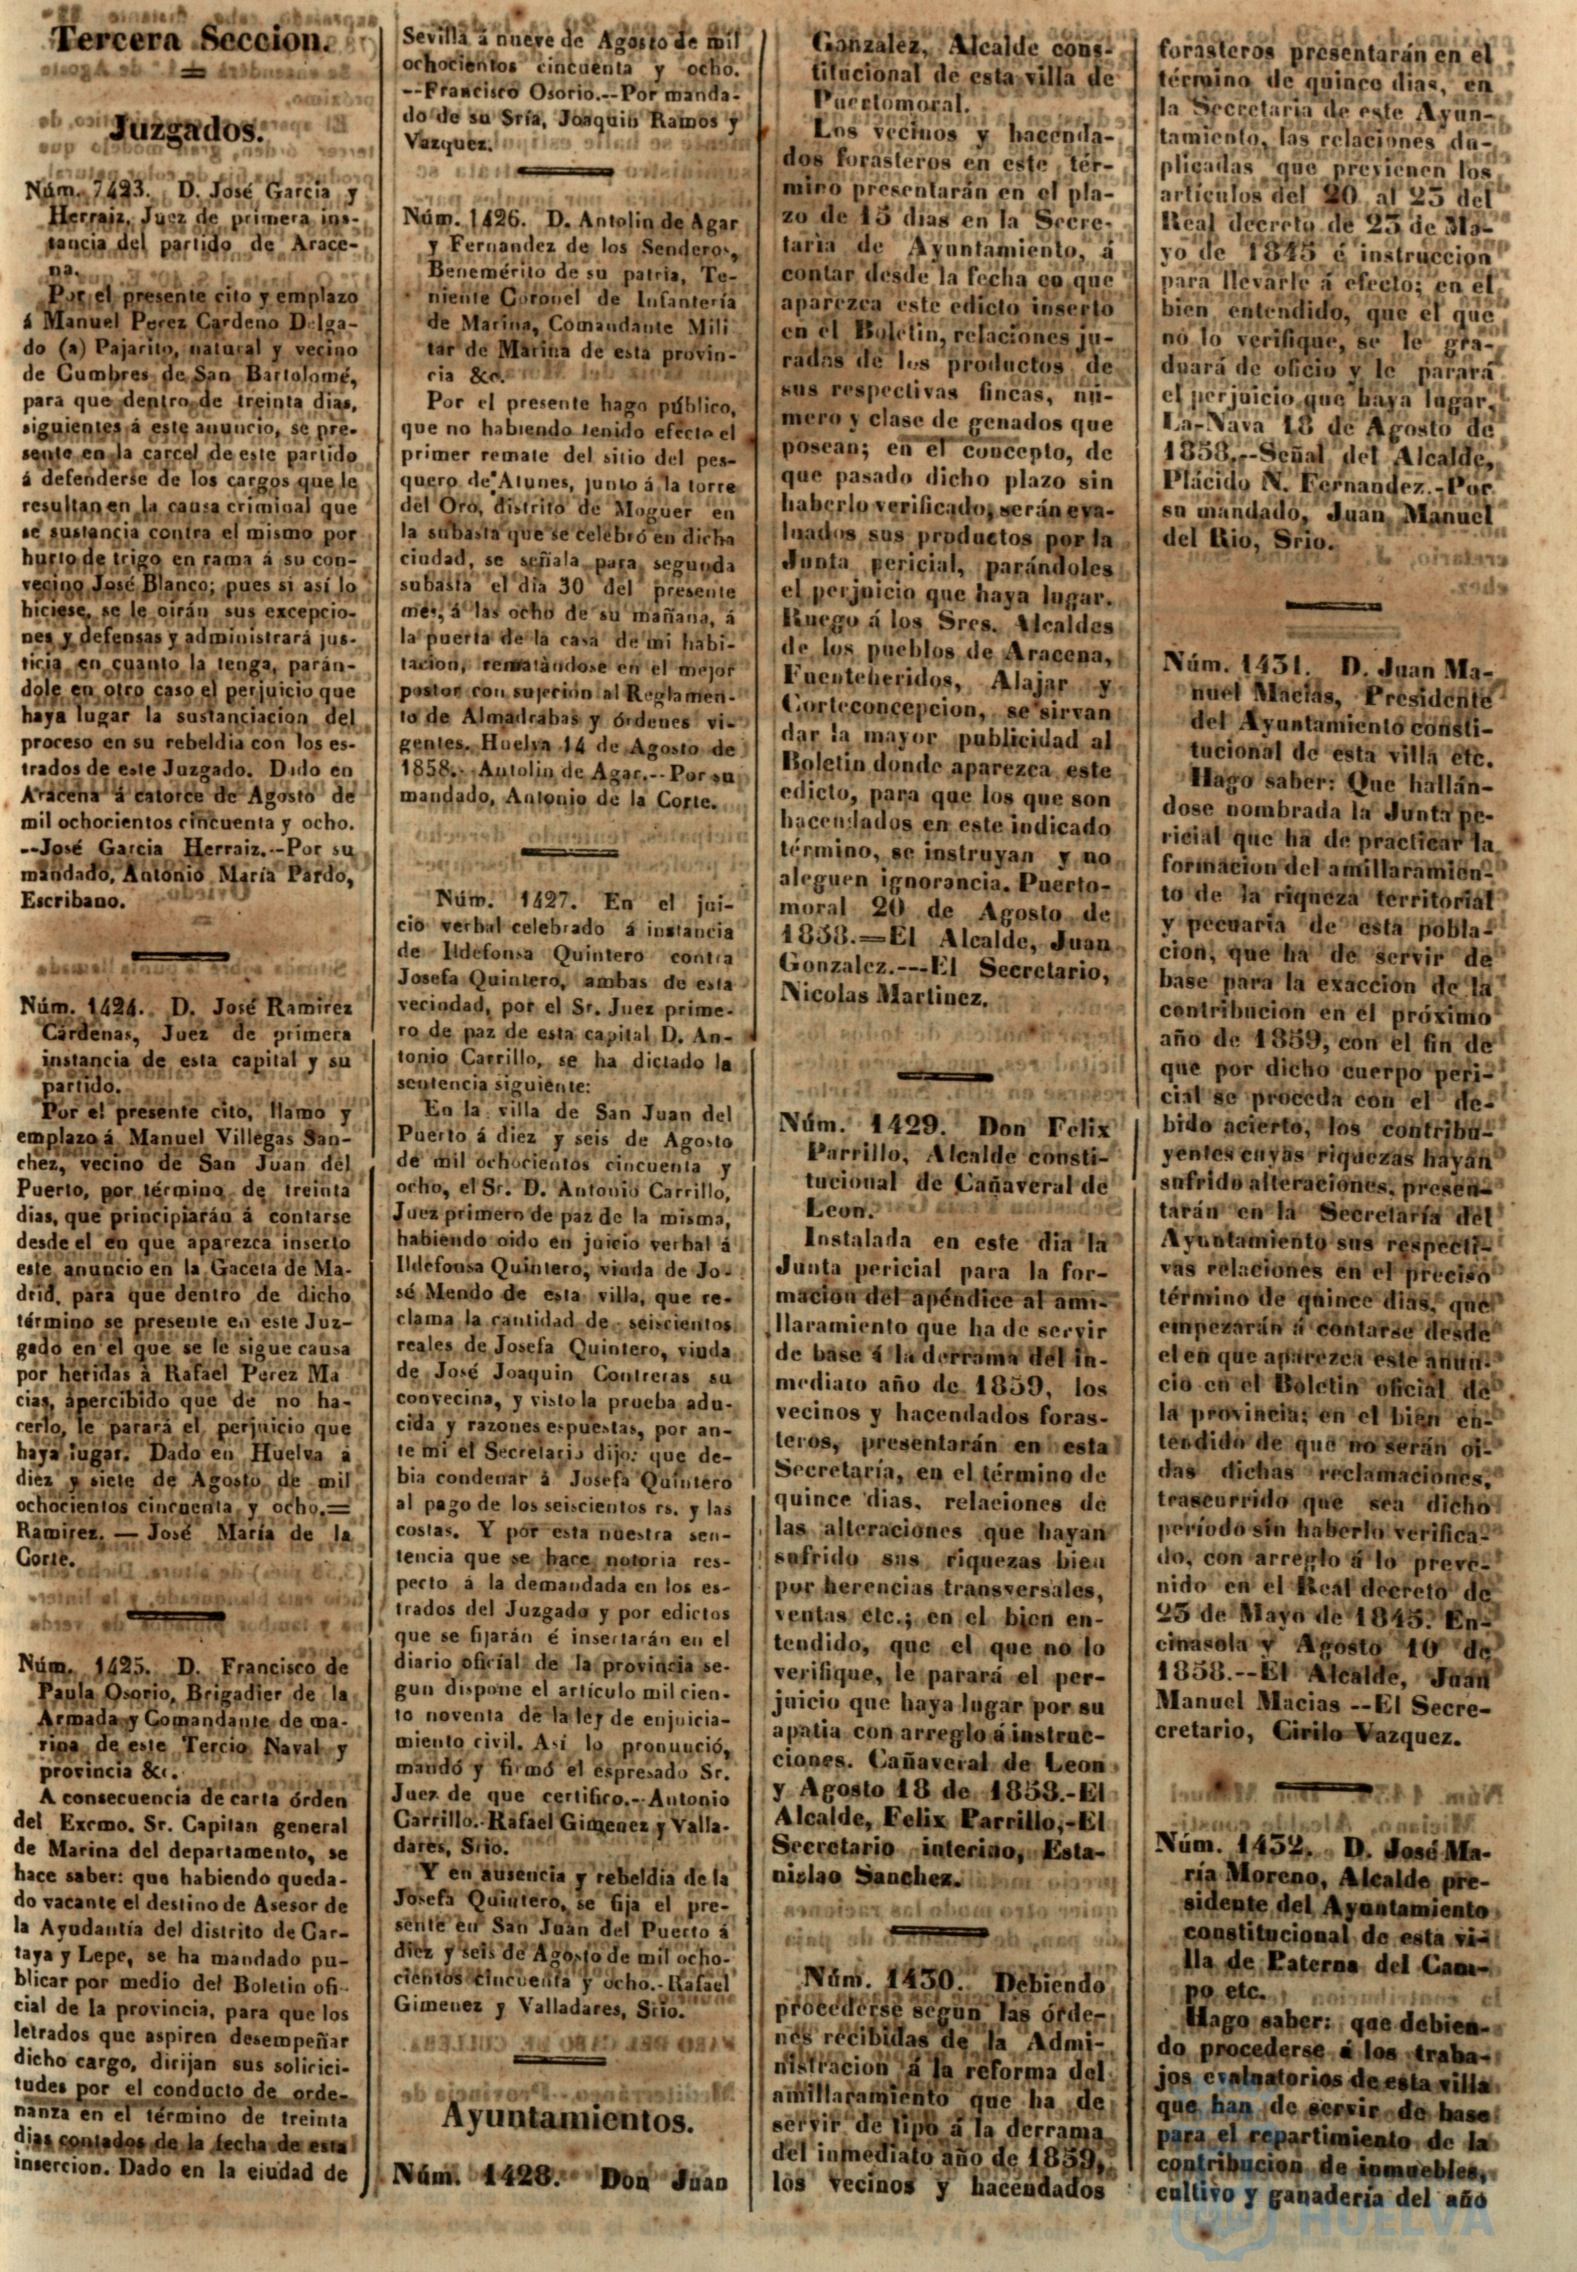 Tercera Seccion.
Juzgados.
Núm. 7423. D. José Garcia y
Herraiz, Juez de primera ins-
tancia del partido de Arace-
na.
Por el presente cito y emplazo
á Manuel Perez Cardeno Delga-
do (a) Pajarito, natural y vecino
de Cumbres de San Bartolomé,
para que dentro de treinta dias,
siguientes á este anuncio, se pre-
sente en la carcel de este partido
á defenderse de los cargos que le
resultan en la causa criminal que
se sustancia contra el mismo por
hurto de trigo en rama á su con-
vecino José Blanco; pues si así lo
hiciese, se le oirán sus excepcio-
nes y defensas y administrará jus-
ticia en cuanto la tenga, parán-
dole en otro caso el perjuicio que
haya lugar la sustanciacion del
proceso en su rebeldia con los es-
trados de este Juzgado. Dado en
Aracena á catorce de Agosto de
mil ochocientos cincuenta y ocho.
--José Garcia Herraiz.--Por su
mandado, Antonio María Pardo,
Escribano.
Núm. 1424. D. José Ramirez
Cárdenas, Juez de primera
instancia de esta capital y su
partido.
Por el presente cito, llamo y
emplazo á Manuel Villegas San-
chez, vecino de San Juan del
Puerto, por término de treinta
dias, que principiarán á contarse
desde el en que aparezca inserto
este anuncio en la Gaceta de Ma-
drid, para que dentro de dicho
término se presente en este Juz-
gado en el que se le sigue causa
por heridas á Rafael Perez Ma
cias, apercibido que de no ha-
cerlo, le parará el perjuicio que
haya lugar. Dado en Huelva á
diez y siete de Agosto de mil
ochocientos cincuenta y ocho.=
Ramirez. — José María de la
Corte.
Núm. 1425. D. Francisco de
Paula Osorio, Brigadier de la
Armada y Comandante de ma-
rina de este Tercio Naval y
provincia &c.
A consecuencia de carta órden
del Excmo. Sr. Capitan general
de Marina del departamento, se
hace saber: que habiendo queda-
do vacante el destino de Asesor de
la Ayudantía del distrito de Car-
taya y Lepe, se ha mandado pu-
blicar por medio del Boletin ofi-
cial de la provincia, para que los
letrados que aspiren desempeñar
dicho cargo, dirijan sus solirici-
tudes por el conducto de orde-
nanza en el término de treinta
dias contados de la fecha de esta
insercion. Dado en la eiudad de
Sevilla á nueve de Agosto de mil
ochocientos cincuenta y ocho.
--Francisco Osorio.--Por manda-
do de su Sría, Joaquin Ramos y
Vazquez.
Núm. 1426. D. Antolin de Agar
y Fernandez de los Senderos,
Benemérito de su patria, Te-
niente Coronel de Infantería
de Marina, Comandante Mili
tar de Marina de esta provin-
cia &c.
Por el presente hago público,
que no habiendo tenido efecto el
primer remate del sitio del pes-
quero de Atunes, junto á la torre
del Oro, distrito de Moguer en
la subasta que se celebró en dicha
ciudad, se señala para segunda
subasta el dia 30 del presente
mes, á las ocho de su mañana, á
la puerta de la casa de mi habi-
tacion, rematándose en el mejor
postor con sujecion al Reglamen-
to de Almadrabas y órdenes vi-
gentes. Huelva 14 de Agosto de
1858.--Antolin de Agar.--Por su
mandado, Antonio de la Corte.
Núm. 1427. En el jui-
cio verbal celebrado á instancia
de Ildefonsa Quintero contra
Josefa Quintero, ambas de esta
vecindad, por el Sr. Juez prime-
ro de paz de esta capital D. An-
tonio Carrillo, se ha dictado la
sentencia siguiente:
En la villa de San Juan del
Puerto á diez y seis de Agosto
de mil ochocientos cincuenta y
ocho, el Sr. D. Antonio Carrillo,
Juez primero de paz de la misma,
habiendo oido en juicio verbal á
Ildefonsa Quintero, viuda de Jo-
sé Mendo de esta villa, que re-
clama la cantidad de seiscientos
reales de Josefa Quintero, viuda
de José Joaquin Contreras su
convecina, y visto la prueba adu-
cida y razones espuestas, por an-
te mi el Secretario dijo: que de-
bia condenar á Josefa Quintero
al pago de los seiscientos rs. y las
costas. Y por esta nuestra sen-
tencia que se hace notoria res-
pecto á la demandada en los es-
trados del Juzgado y por edictos
que se fijarán é insertarán en el
diario oficial de la provincia se-
gun dispone el artículo mil cien-
to noventa de la ley de enjuicia-
miento civil. Así lo pronunció,
mandó y firmó el espresado Sr.
Juez de que certifico.--Antonio
Carrillo.-Rafael Gimenez y Valla-
dares, Srio.
Y en ausencia y rebeldia de la
Josefa Quintero, se fija el pre-
sente en San Juan del Puerto á
diez y seis de Agosto de mil ocho-
cientos cincuenta y ocho.-Rafael
Gimenez y Valladares, Srio.
Ayuntamientos.
Núm. 1428. Don Juan
Gonzalez, Alcalde cons-
titucional de esta villa de
Puertomoral.
Los vecinos y hacenda-
dos forasteros en este tér-
miro presentarán en el pla-
zo de 15 dias en la Secre-
taria de Ayuntamiento, á
contar desde la fecha en que
aparezca este edicto inserto
en el Boletin, relaciones ju-
radas de los productos de
sus respectivas fincas, nú-
mero y clase de genados que
posean; en el concepto, de
que pasado dicho plazo sin
haberlo verificado, serán eva-
luados sus productos por la
Junta pericial, parándoles
el perjuicio que haya lugar.
Ruego á los Sres. Alcaldes
de los pueblos de Aracena,
Fuenteheridos, Alajar y
Corteconcepcion, se sirvan
dar la mayor publicidad al
Boletin donde aparezca este
edicto, para que los que son
hacendados en este indicado
término, se instruyan y no
aleguen ignorancia. Puerto-
moral 20 de Agosto de
1858.=El Alcalde, Juan
Gonzalez.---El Secretario,
Nicolas Martinez.
Núm. 1429. Don Felix
Parrillo, Alcalde consti-
tucional de Cañaveral de
Leon.
Instalada en este dia la
Junta pericial para la for-
macion del apéndice al ami-
llaramiento que ha de servir
de base á la derrama del in-
mediato año de 1859, los
vecinos y hacendados foras-
teros, presentarán en esta
Secretaría, en el término de
quince dias, relaciones de
las alteraciones que hayan
sufrido sus riquezas bien
por herencias transversales,
ventas etc.; en el bien en-
tendido, que el que no lo
verifique, le parará el per-
juicio que haya lugar por su
apatia con arreglo á instruc-
ciones. Cañaveral de Leon
y Agosto 18 de 1858.-El
Alcalde, Felix Parrillo,-El
Secretario interino, Esta-
nislao Sanchez.
Núm. 1430. Debiendo
procederse segun las órde-
nes recibidas de la Admi-
nistracion á la reforma del
amillaramiento que ha de
servir de tipo á la derrama
del inmediato año de 1859,
los vecinos y hacendados
forasteros presentarán en el
término de quince dias, en
la Secretaria de este Ayun-
tamiento, las relaciones du-
plicadas que previenen los
artículos del 20 al 23 del
Real decreto de 23 de Ma-
yo de 1845 é instruccion
para llevarle á efecto; en el
bien entendido, que el que
no lo verifique, se le gra-
duará de oficio y le parará
el perjuicio que haya lugar.
La-Nava 18 de Agosto de
1858.--Señal del Alcalde,
Plácido N. Fernandez.-Por
su mandado, Juan Manuel
del Rio, Srio.
Núm. 1431. D. Juan Ma-
nuel Macias, Presidente
del Ayuntamiento consti-
tucional de esta villa etc.
Hago saber: Que hallán-
dose nombrada la Junta pe-
ricial que ha de practicar la
formacion del amillaramien-
to de la riqueza territorial
y pecuaria de esta pobla-
cion, que ha de servir de
base para la exaccion de la
contribucion en el próximo
año de 1859, con el fin de
que por dicho cuerpo peri-
cial se proceda con el de-
bido acierto, los contribu-
yentes cuyas riquezas hayan
sufrido alteraciones, presen-
tarán en la Secretaría del
Ayuntamiento sus respecti-
vas relaciones en el preciso
término de quince dias, que
empezarán á contarse desde
el en que aparezca este anun-
cio en el Boletin oficial de
la provincia; en el bien en-
tendido de que no serán oi-
das dichas reclamaciones,
trascurrido que sea dicho
período sin haberlo verifica-
do, con arreglo á lo preve-
nido en el Real decreto de
23 de Mayo de 1845. En-
cinasola y Agosto 10 de
1858.--El Alcalde, Juan
Manuel Macias --El Secre-
cretario, Cirilo Vazquez.
Núm. 1432. D. José Ma-
ría Moreno, Alcalde pre-
sidente del Ayuntamiento
constitucional de esta vi-
lla de Paterna del Cam-
po etc.
Hago saber: que debien-
do procederse á los traba-
jos evaluatorios de esta villa
que han de servir de base
para el repartimiento de la
contribucion de inmuebles,
cultivo y ganadería del año
HUELVA